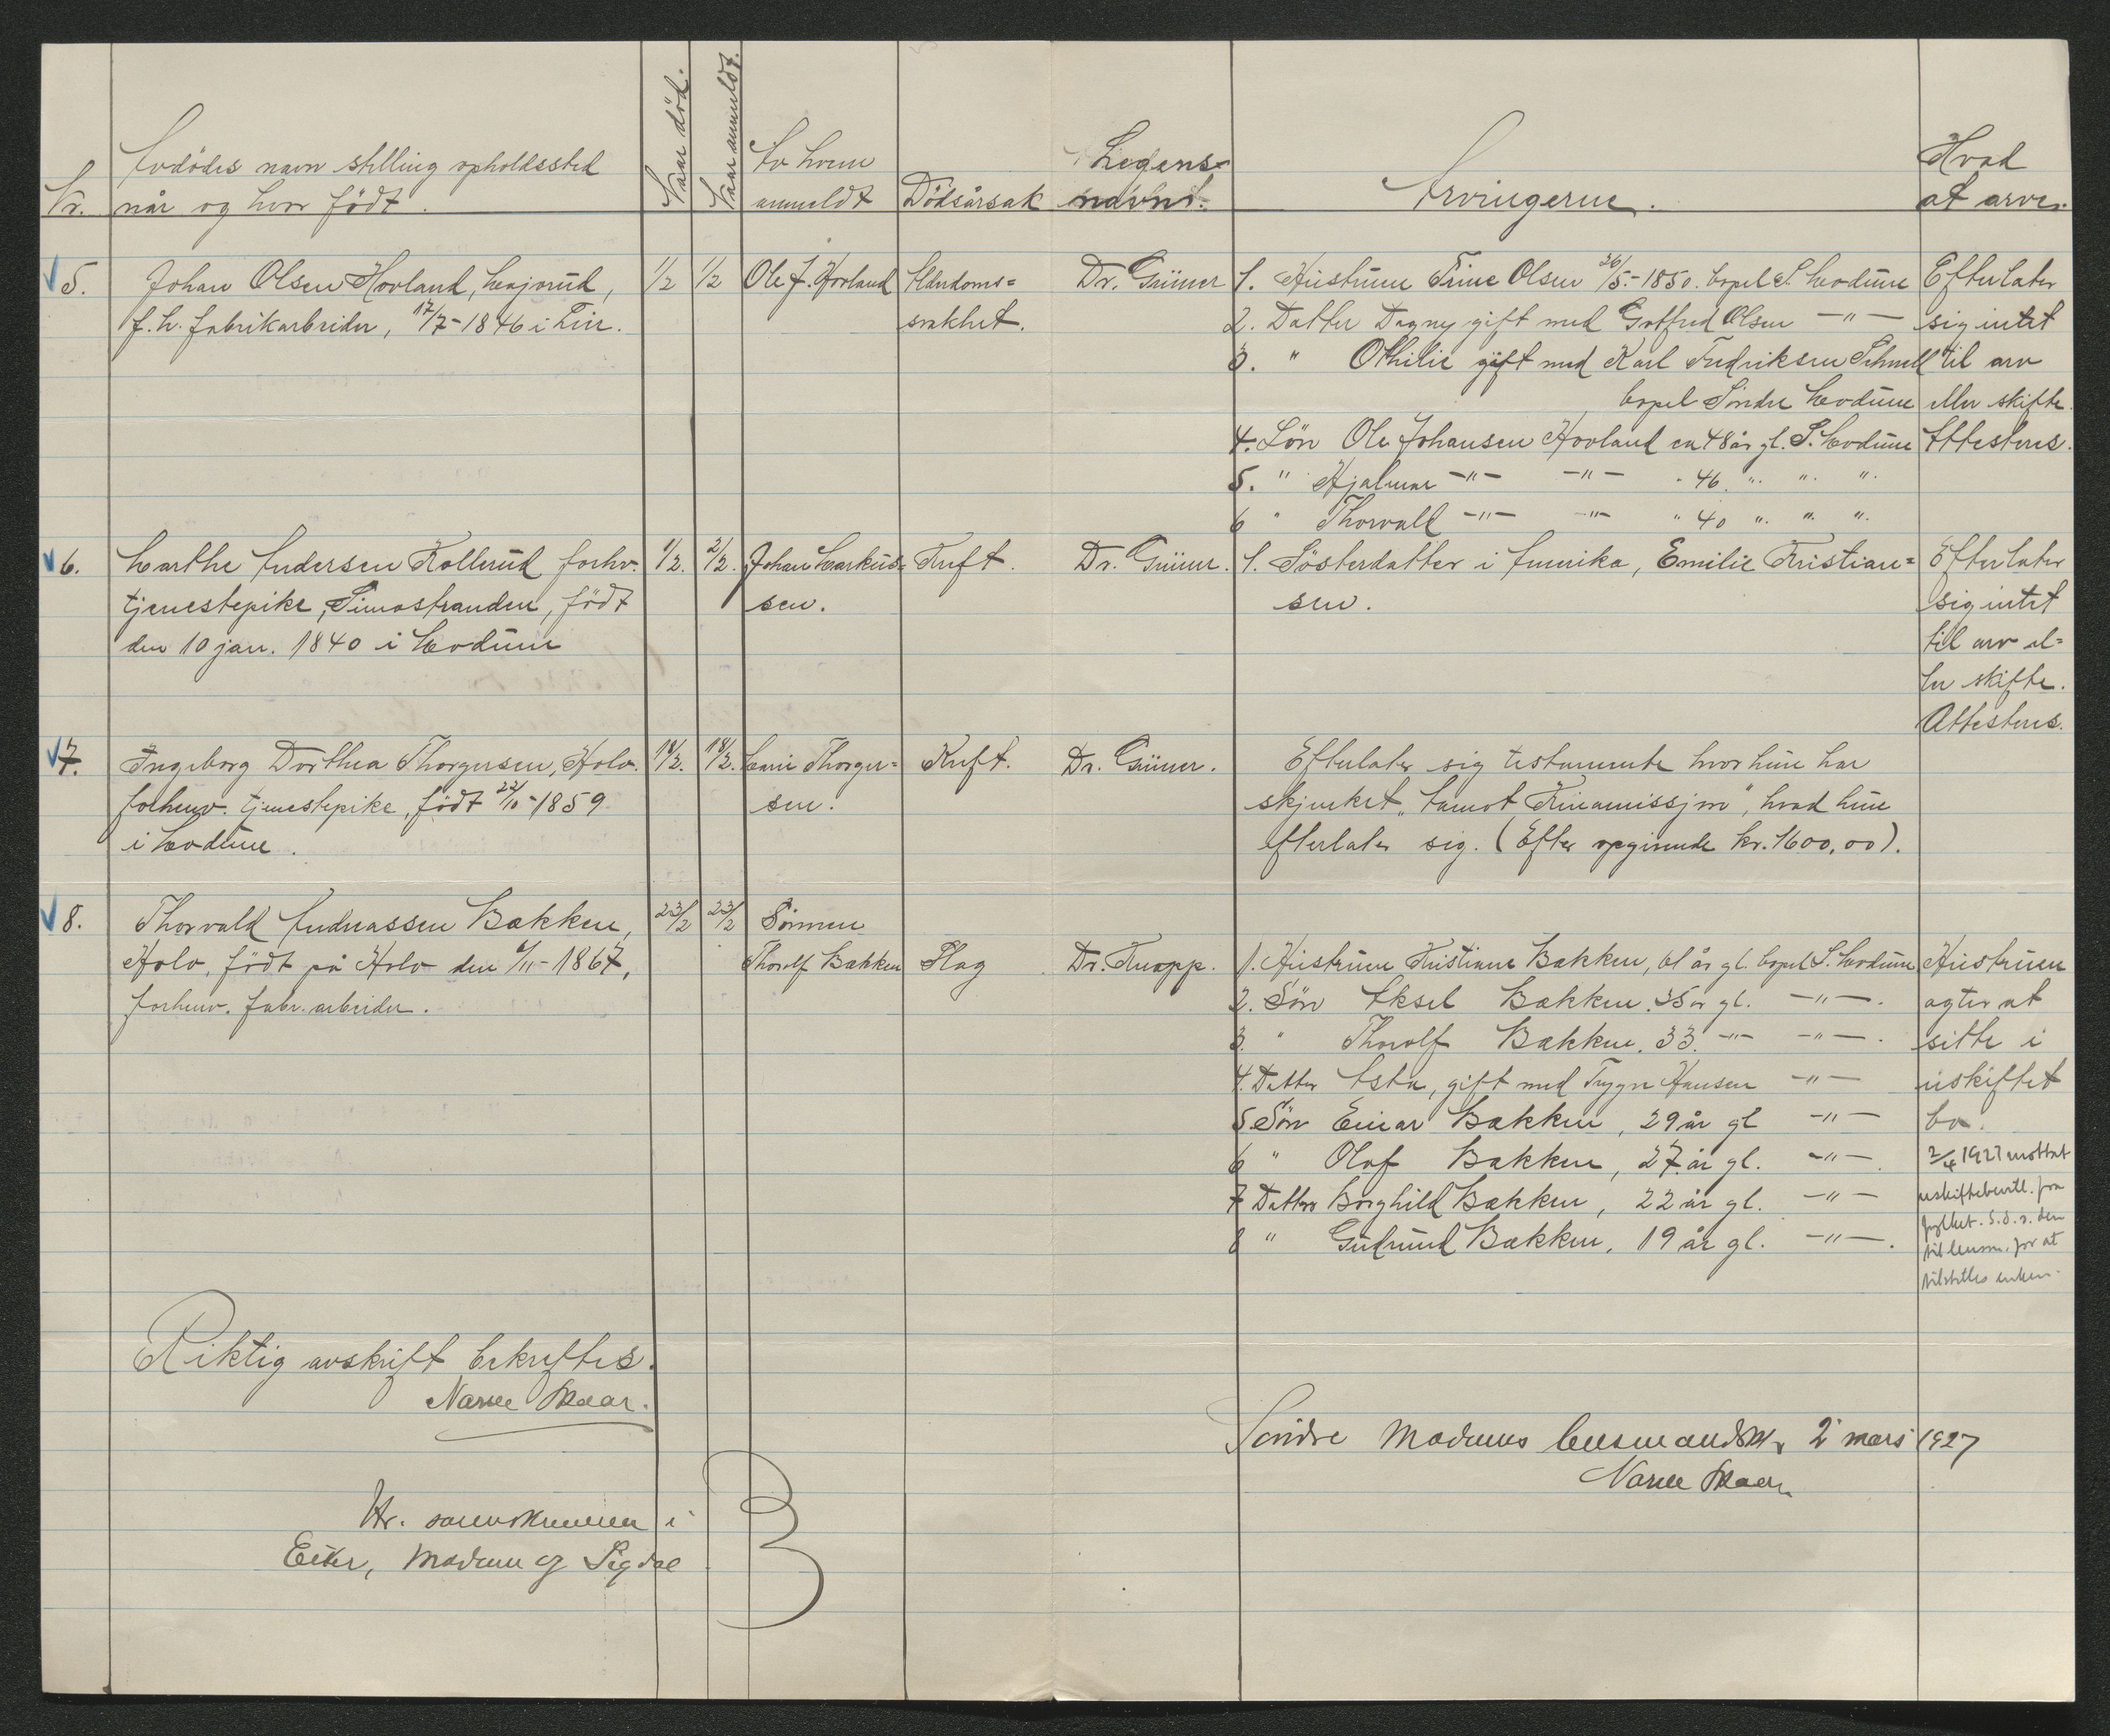 Nr.
Avdödes navn stilling opholdssted
når og hvor født.
Naar död.
Naar anmeldt.
Av hvem
anmeldt
Dödsårsak
Legens-
navn.
Arvingerne.
Hvad
at arve.
√ 5.
Johan Olsen Hovland,
f.h. fabrikarbeider, 17/7-1846 i Lier.
1/2
1/2
Ole J. Hovland
Alderdoms=
svakhet.
Dr. Grüner
1. Hustruen Trine Olsen 26/5-1850. bopel S. Modum
2. Datter Dagny gift med Gotfred Olsen —"—
3. " Othilie gift med Karl Fredriksen Schnell
bopel Söndre Modum
4. Sön Ole Johansen Hovland ca 48 år gl. S. Modum
5. " Hjalmar —"— —"— " 46. " " "
6 " Thorvald —"— —"— " 40 " " "
Efterlater
sig intet
til arv
eller skifte.
Attesteres.
√ 6.
Marthe Andersen Kollerud forhv.
tjenestepike, Simostranden, född
den 10 jan. 1840 i Modum
1/2.
2/2.
Johan Markus=
sen.
Kreft.
Dr. Grüner.
1. Sösterdatter i Amerika, Emilie Kristian=
sen.
Efterlater
sig intet
til arv el=
ler skifte.
Attesteres.
√ 7.
Ingeborg Dorthea Thorgersen, Holv.
forhenv. tjenestepike, födt 22/10-1859
i Modum.
18/2.
18/2.
Marie Thorger=
sen.
Kreft.
Dr. Grüner.
Efterlater sig testamente hvor hun har
skjenket „Kinamissjon", hvad hun
efterlater sig. (Efter opgivende kr. 1600,00).
√ 8.
Thorvald Andreassen Bakken,
Holv, födt på Holv den 6/11-1867,
forhenv. fabr. arbeider.
23/2
23/2
Sönnen
Thorolf Bakken
Slag
Dr. Knapp.
1. Hustruen Kristiane Bakken, 61 år gl. bopel S. Modum
2. Sön Aksel Bakken. 35 år gl. —"—.
3. " Thorolf Bakken. 33. —"— —"—.
4. Datter Asta, gift med Trygve Hansen —"—
5 Sön Einar Bakken, 29 år gl —"—
6 " Olaf Bakken, 27 år gl. —"—.
7 Datter Borghild Bakken, 22 år gl. —"—
8 " Gudrund Bakken, 19 år gl. —"—.
Hustruen
agter at
sitte i
uskiftet
bo.
2/4 1927 mottat
uskiftebevill. fra
fylket. S.d. s. den
til lensm. for at
tilstilles enken.
Riktig avskrift bekreftes.
Narve Skaar.
Söndre Modums lensmandsk. 2 mars 1927
Narve Skaar
Hr. sorenskriveren i
Eiker, Modum og Sigdal
B